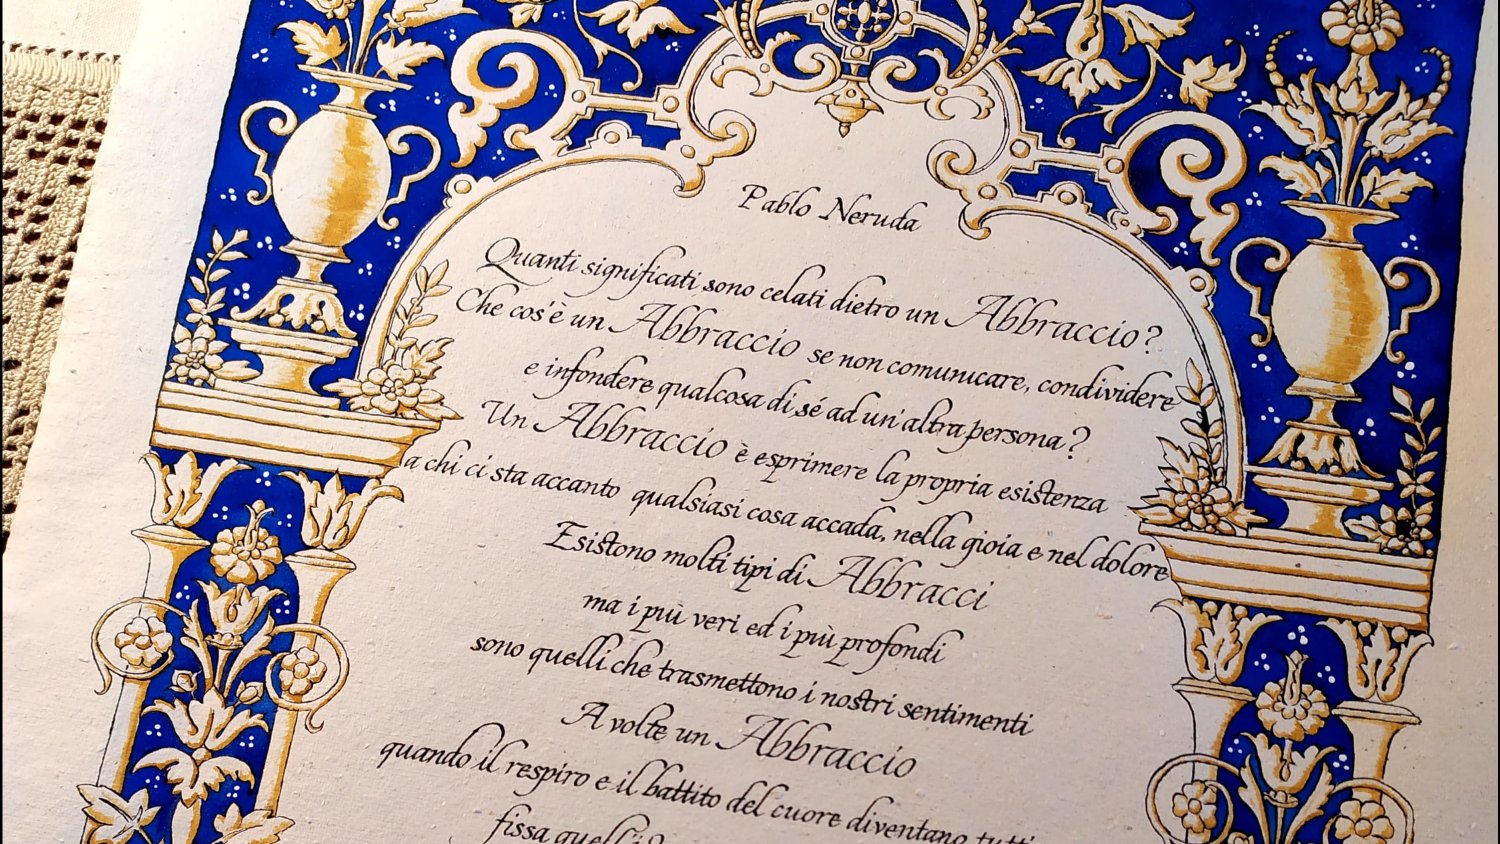 Pablo Neruda
Quanti significati sono celati dietro un Abbraccio?
Che cos'è un Abbraccio se non comunicare, condividere
e infondere qualcosa di sé ad un'altra persona?
Un Abbraccio è esprimere la propria esistenza
a chi ci sta accanto qualsiasi cosa accada, nella gioia e nel dolore
Esistono molti tipi di Abbracci
ma i più veri ed i più profondi
sono quelli che trasmettono i nostri sentimenti
A volte un Abbraccio
quando il respiro e il battito del cuore diventano tutti
fissa quell'